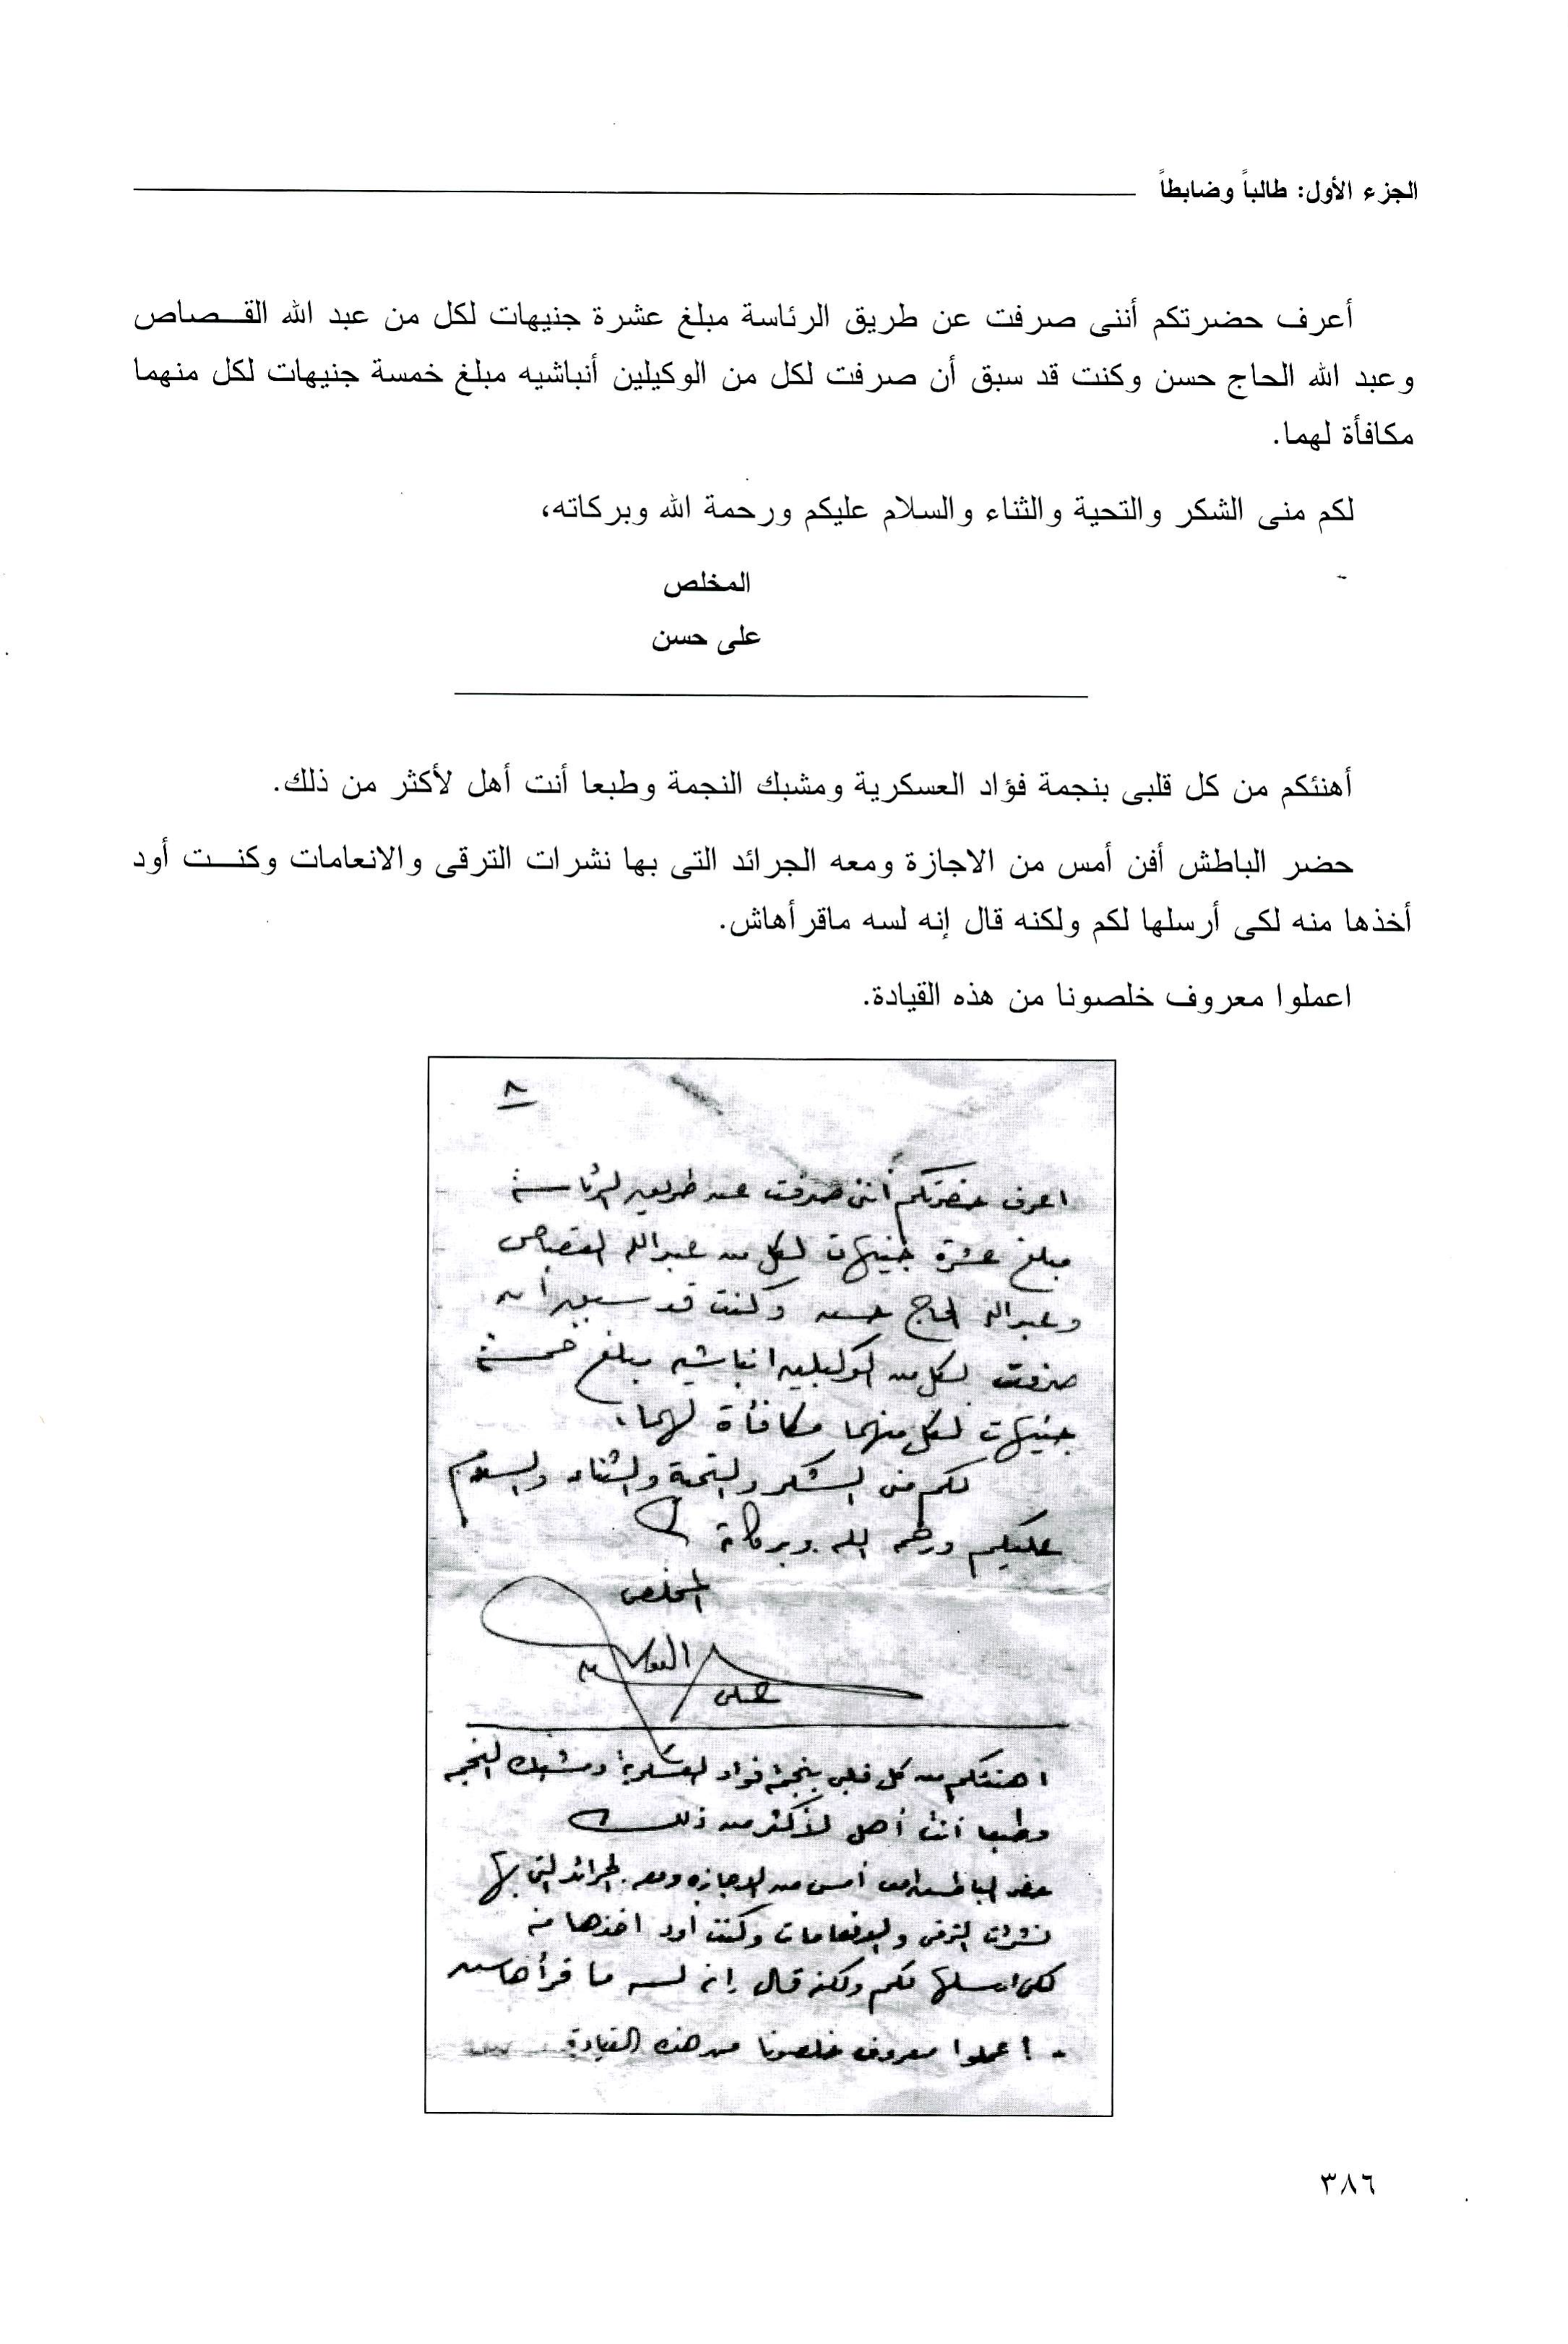 الجزء الأول: طالباً وضابطاً
أعرف حضرتكم أننى صرفت عن طريق الرئاسة مبلغ عشرة جنيهات لكل من عبد الله القصاص
وعبد الله الحاج حسن وكنت قد سبق أن صرفت لكل من الوكيلين أنباشيه مبلغ خمسة جنيهات لكل منهما
مكافأة لهما.
لكم منى الشكر والتحية والثناء والسلام عليكم ورحمة الله وبركاته،
المخلص
على حسن
أهنئكم من كل قلبى بنجمة فؤاد العسكرية ومشبك النجمة وطبعا أنت أهل لأكثر من ذلك.
حضر الباطش أفن أمس من الاجازة ومعه الجرائد التى بها نشرات الترقى والانعامات وكنت أود
أخذها منه لكى أرسلها لكم ولكنه قال إنه لسه ماقرأهاش.
اعملوا معروف خلصونا من هذه القيادة.
٨
اعرف حضرتكم أننى صرفت عن طريق الرئاسة
مبلغ عشرة جنيهات لكل من عبد الله القصاص
وعبد الله الحاج حسن وكنت قد سبق أن
صرفت لكل من الوكيلين انباشيه مبلغ خمسة
جنيهات لكل منهما مكافأة لهما،
لكم منى الشكر والتحية والثناء والسلام
عليكم ورحمة الله وبركاته
المخلص
على
اهنئكم من كل قلبى بنجمة فؤاد العسكرية ومشبك النجمه
وطبعا أنت أهل لأكثر من ذلك
حضر الباطش افن أمس من الاجازه ومعه الجرائد التى بها
نشرات الترقى والانعامات وكنت أود اخذها منه
لكى ارسلها لكم ولكنه قال إنه لسه ما قرأهاش
- اعملوا معروف خلصونا من هذه القيادة
٣٨٦